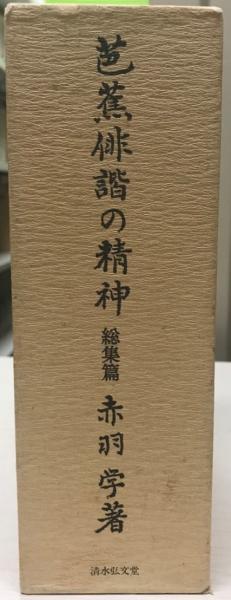 芭蕉俳諧の精神 総集篇 赤羽学著
清水弘文堂